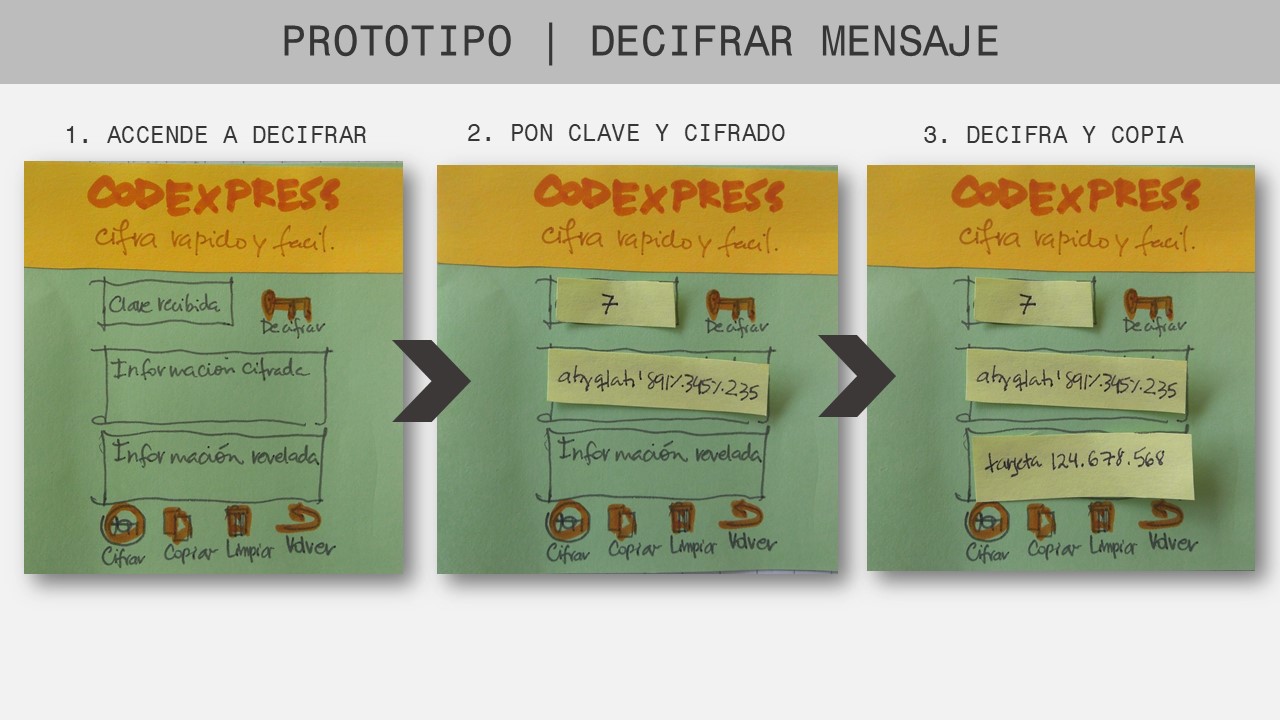 PROTOTIPO | DECIFRAR MENSAJE
1. ACCENDE A DECIFRAR
CODEXPRESS
cifra rapido y facil.
Clave recibida
Decifrar
Información cifrada
Información revelada
Cifrar Copiar Limpiar Volver
2. PON CLAVE Y CIFRADO
CODEXPRESS
cifra rapido y facil.
7
Decifrar
891%345%235
Información revelada
Cifrar Copiar Limpiar Volver
3. DECIFRA Y COPIA
CODEXPRESS
cifra rapido y facil.
7
Decifrar
891%345%235
tarjeta 124.678.568
Cifrar Copiar Limpiar Volver